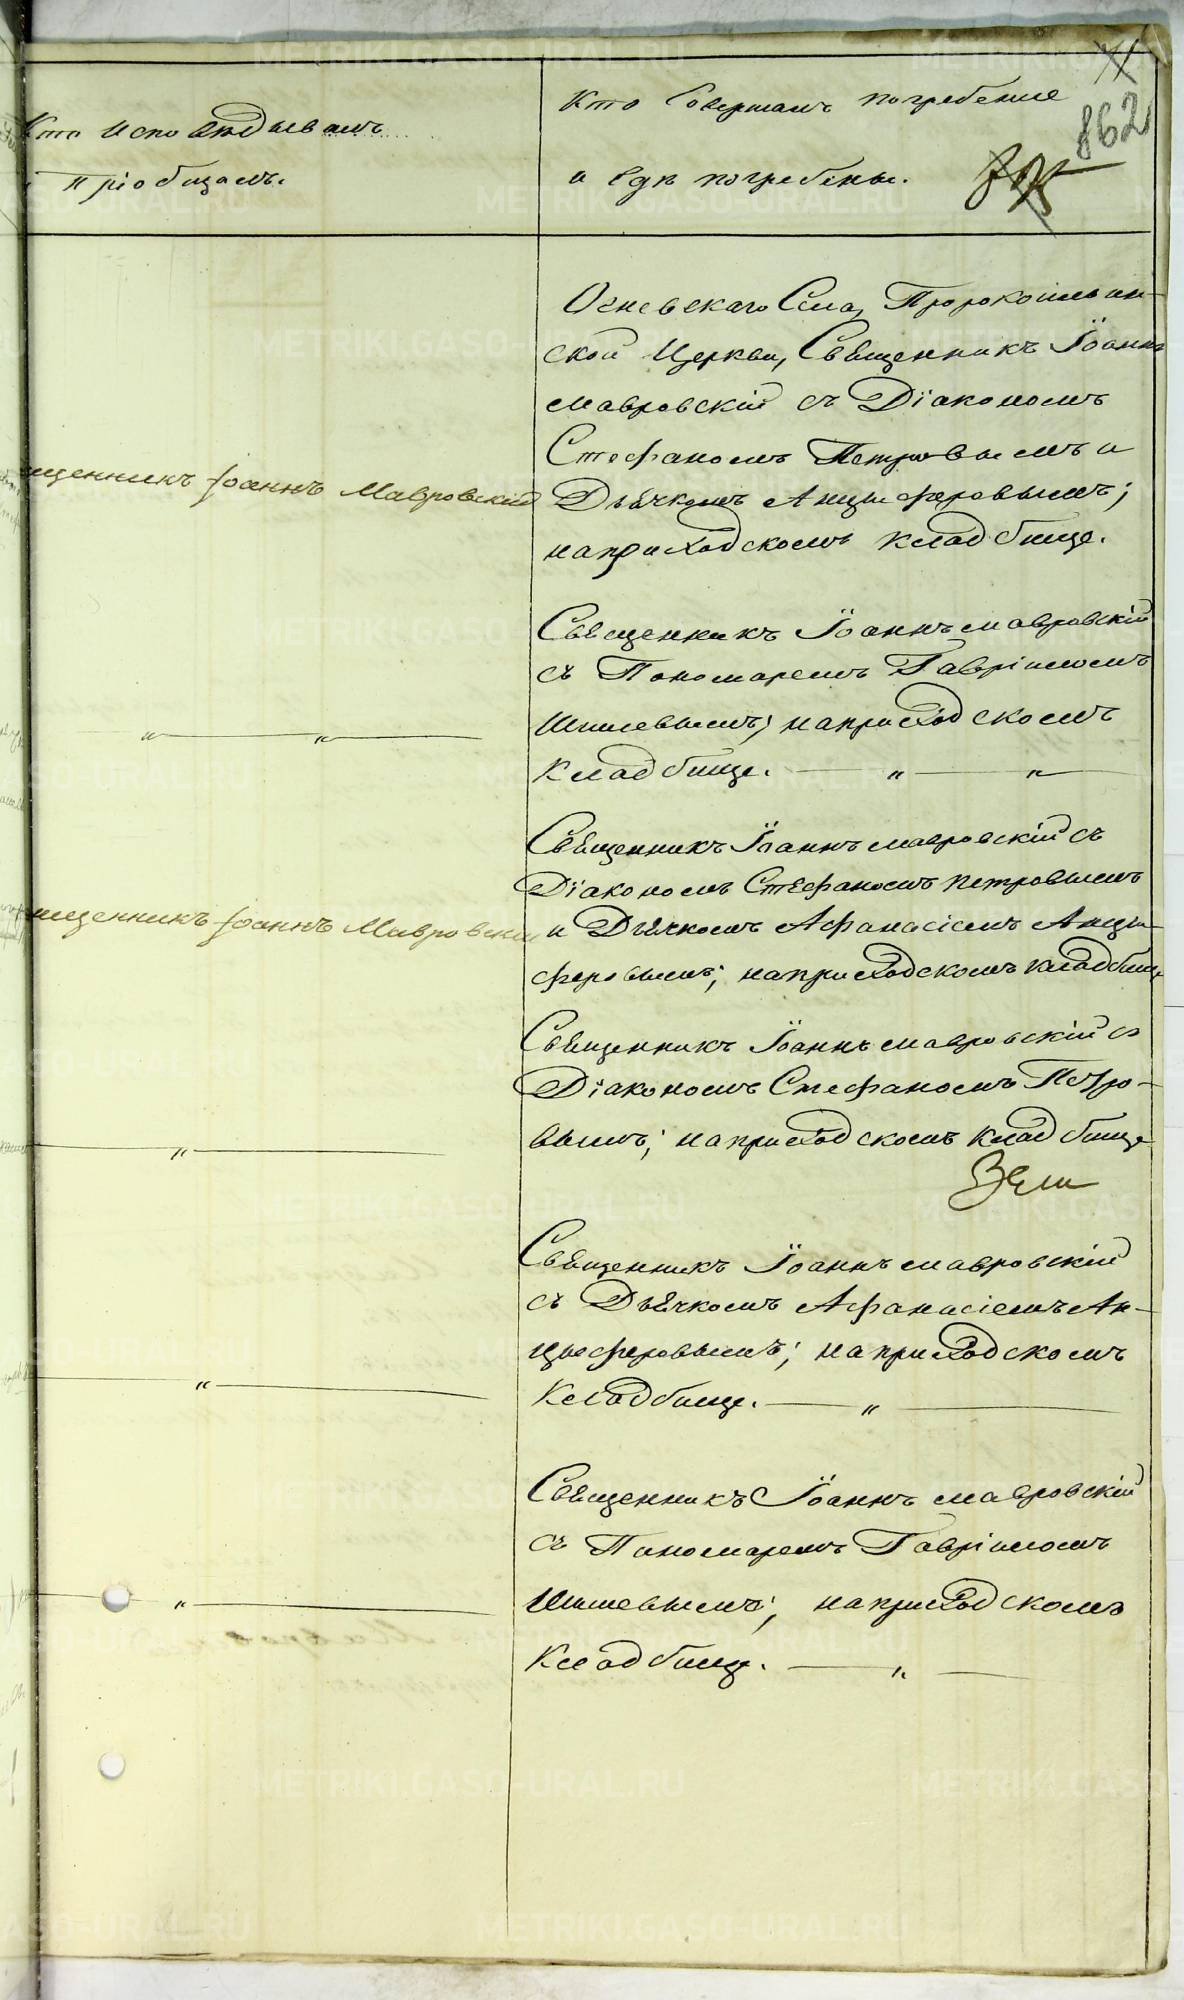 Кто Исповѣдывалъ
и Пріобщалъ.
Кто Совершалъ погребеніе
и гдѣ погребены.
862
Огневскаго Села, Пророкоильин-
ской Церкви, Священникъ Іоаннъ
Мавровскій съ Діакономъ
Стефаномъ Петровымъ и
Дьячкомъ Анцыферовымъ;
на приходскомъ кладбище.
щенникъ Іоаннъ Мавровскій
Священникъ Іоаннъ Мавровскій
съ Пономаремъ Гавріиломъ
Шишевымъ; на приходскомъ
Кладбище. — „ — „
„ — „
Священникъ Іоаннъ Мавровскій съ
Діакономъ Стефаномъ Петровымъ
и Дьячкомъ Афанасіемъ Анцы-
феровымъ; на приходскомъ кладбище
щенникъ Іоаннъ Мавровскій
Священникъ Іоаннъ Мавровскій съ
Діакономъ Стефаномъ Петро-
вымъ; на приходскомъ кладбище
— „ —
Священникъ Іоаннъ Мавровскій
съ Дьячкомъ Афанасіемъ Ан-
цыферовымъ; на приходскомъ
Кладбище. — „ —
— „ —
Священникъ Іоаннъ Мавровскій
съ Пономаремъ Гавріиломъ
Шишевымъ; на приходскомъ
Кладбище. — „ —
— „ —
METRIKI.GASO-URAL.RU